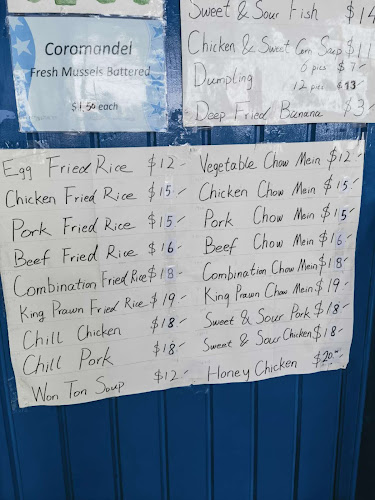 Coromandel
Fresh Mussels Battered
$1.50 each
Sweet & Sour Fish $14
Chicken & Sweet Corn Soup $11
Dumpling 6 pies $7-
12 pies $13
Deep Fried Banana $3-
Egg Fried Rice $12-
Chicken Fried Rice $15-
Pork Fried Rice $15-
Beef Fried Rice $16-
Combination Fried Rice $18-
King Prawn Fried Rice $19-
Chill Chicken $18-
Chill Pork $18-
Won Ton Soup $12-
Vegetable Chow Mein $12-
Chicken Chow Mein $15-
Pork Chow Mein $15
Beef Chow Mein $16
Combination Chow Mein $18-
King Prawn Chow Mein $19-
Sweet & Sour Pork $18-
Sweet & Sour Chicken $18-
Honey Chicken $20.00